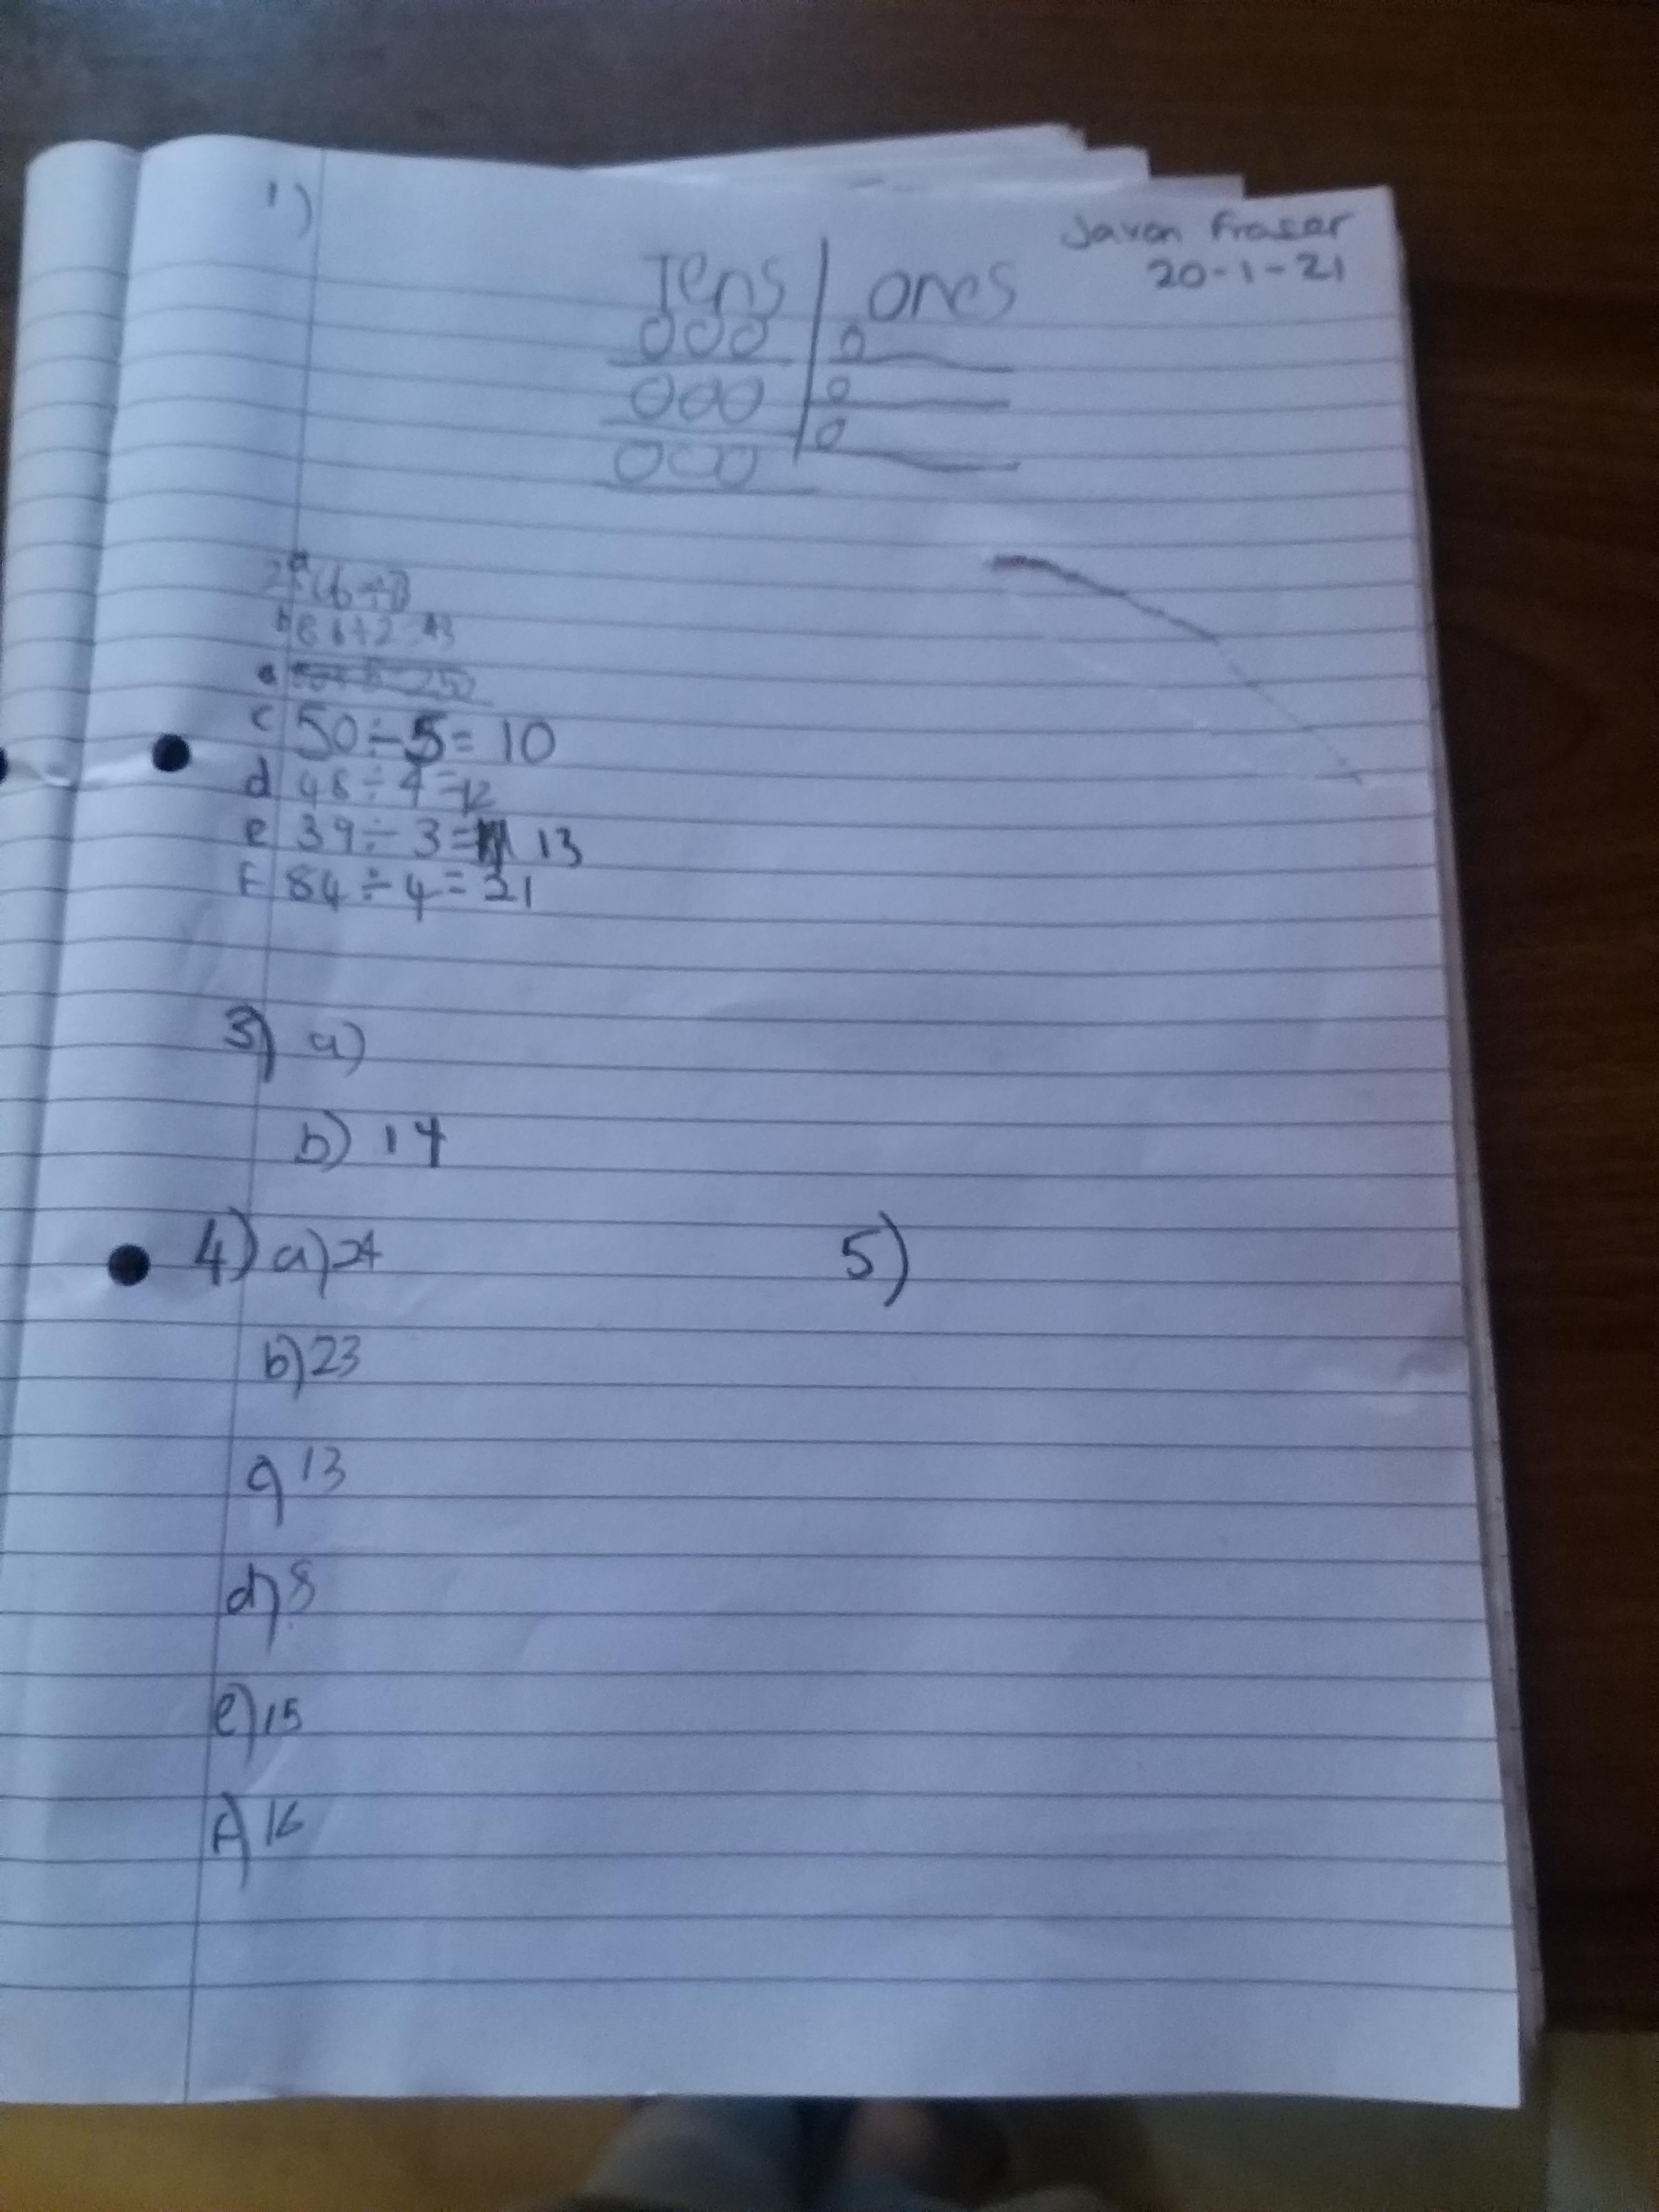 1)
Javon Fraser
20-1-21
Tens | ones
000 | 0
000 | 0
000 | 0
2) a
b 86÷2=43
c 50÷5= 10
d 48÷4=12
e 39÷3= 13
F 84÷4=21
3) a)
b) 14
4) a) 24
5)
b) 23
c) 13
d) 8
e) 15
f) 16